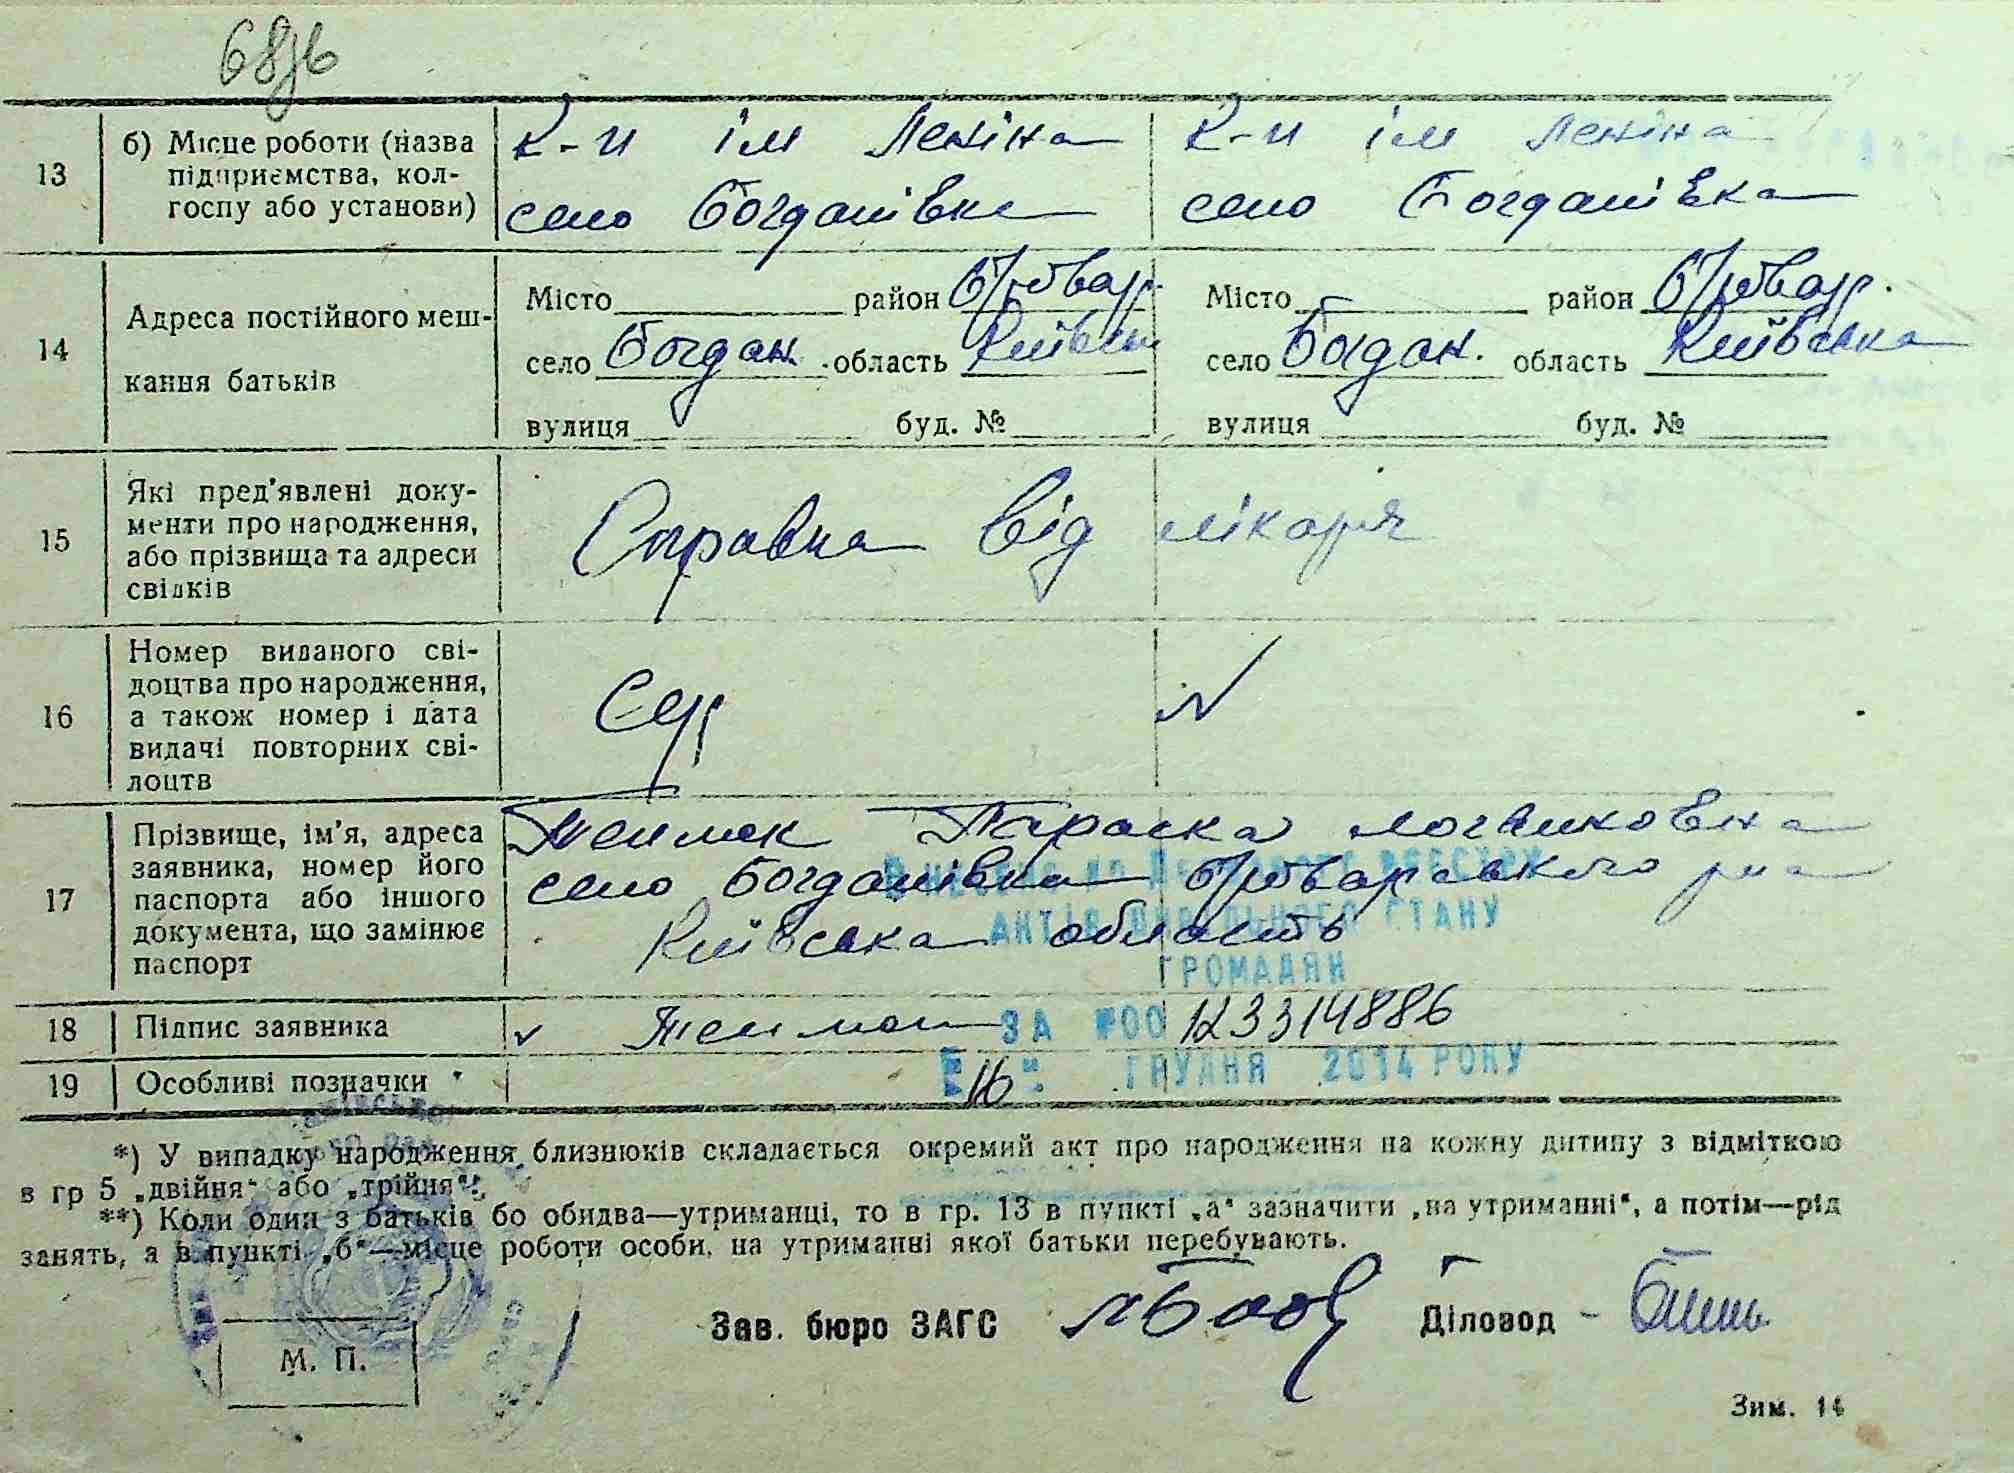 68
13
б) Місце роботи (назва
підприємства, кол-
госпу або установи)
К-п ім Леніна
село Богданівка
К-п ім Леніна
село Богданівка
14
Адреса постійного меш-
кання батьків
Місто район Бровар.
село Богдан. область Київськ
вулиця буд. №
Місто район Бровар.
село Богдан. область Київська
вулиця буд. №
15
Які пред'явлені доку-
менти про народження,
або прізвища та адреси
свідків
Справка від лікаря
16
Номер виданого сві-
доцтва про народження,
а також номер і дата
видачі повторних сві-
доцтв
17
Прізвище, ім'я, адреса
заявника, номер його
паспорта або іншого
документа, що замінює
паспорт
Параска
село Богданівка Броварського р-на
Київська область
АКТІВ ЦИВІЛЬНОГО СТАНУ
ГРОМАДЯН
ЗА №00 123314886
16 ГРУДНЯ 2014 РОКУ
18
Підпис заявника
19
Особливі позначки
*) У випадку народження близнюків складається окремий акт про народження на кожну дитину з відміткою
в гр 5 „двійня“ або „трійня“.
**) Коли один з батьків бо обидва—утриманці, то в гр. 13 в пункті „а“ зазначити „на утриманні“, а потім—рід
занять, а в пункті „б“—місце роботи особи, на утриманні якої батьки перебувають.
Зав. бюро ЗАГС
Діловод -
М. П.
Зим. 14